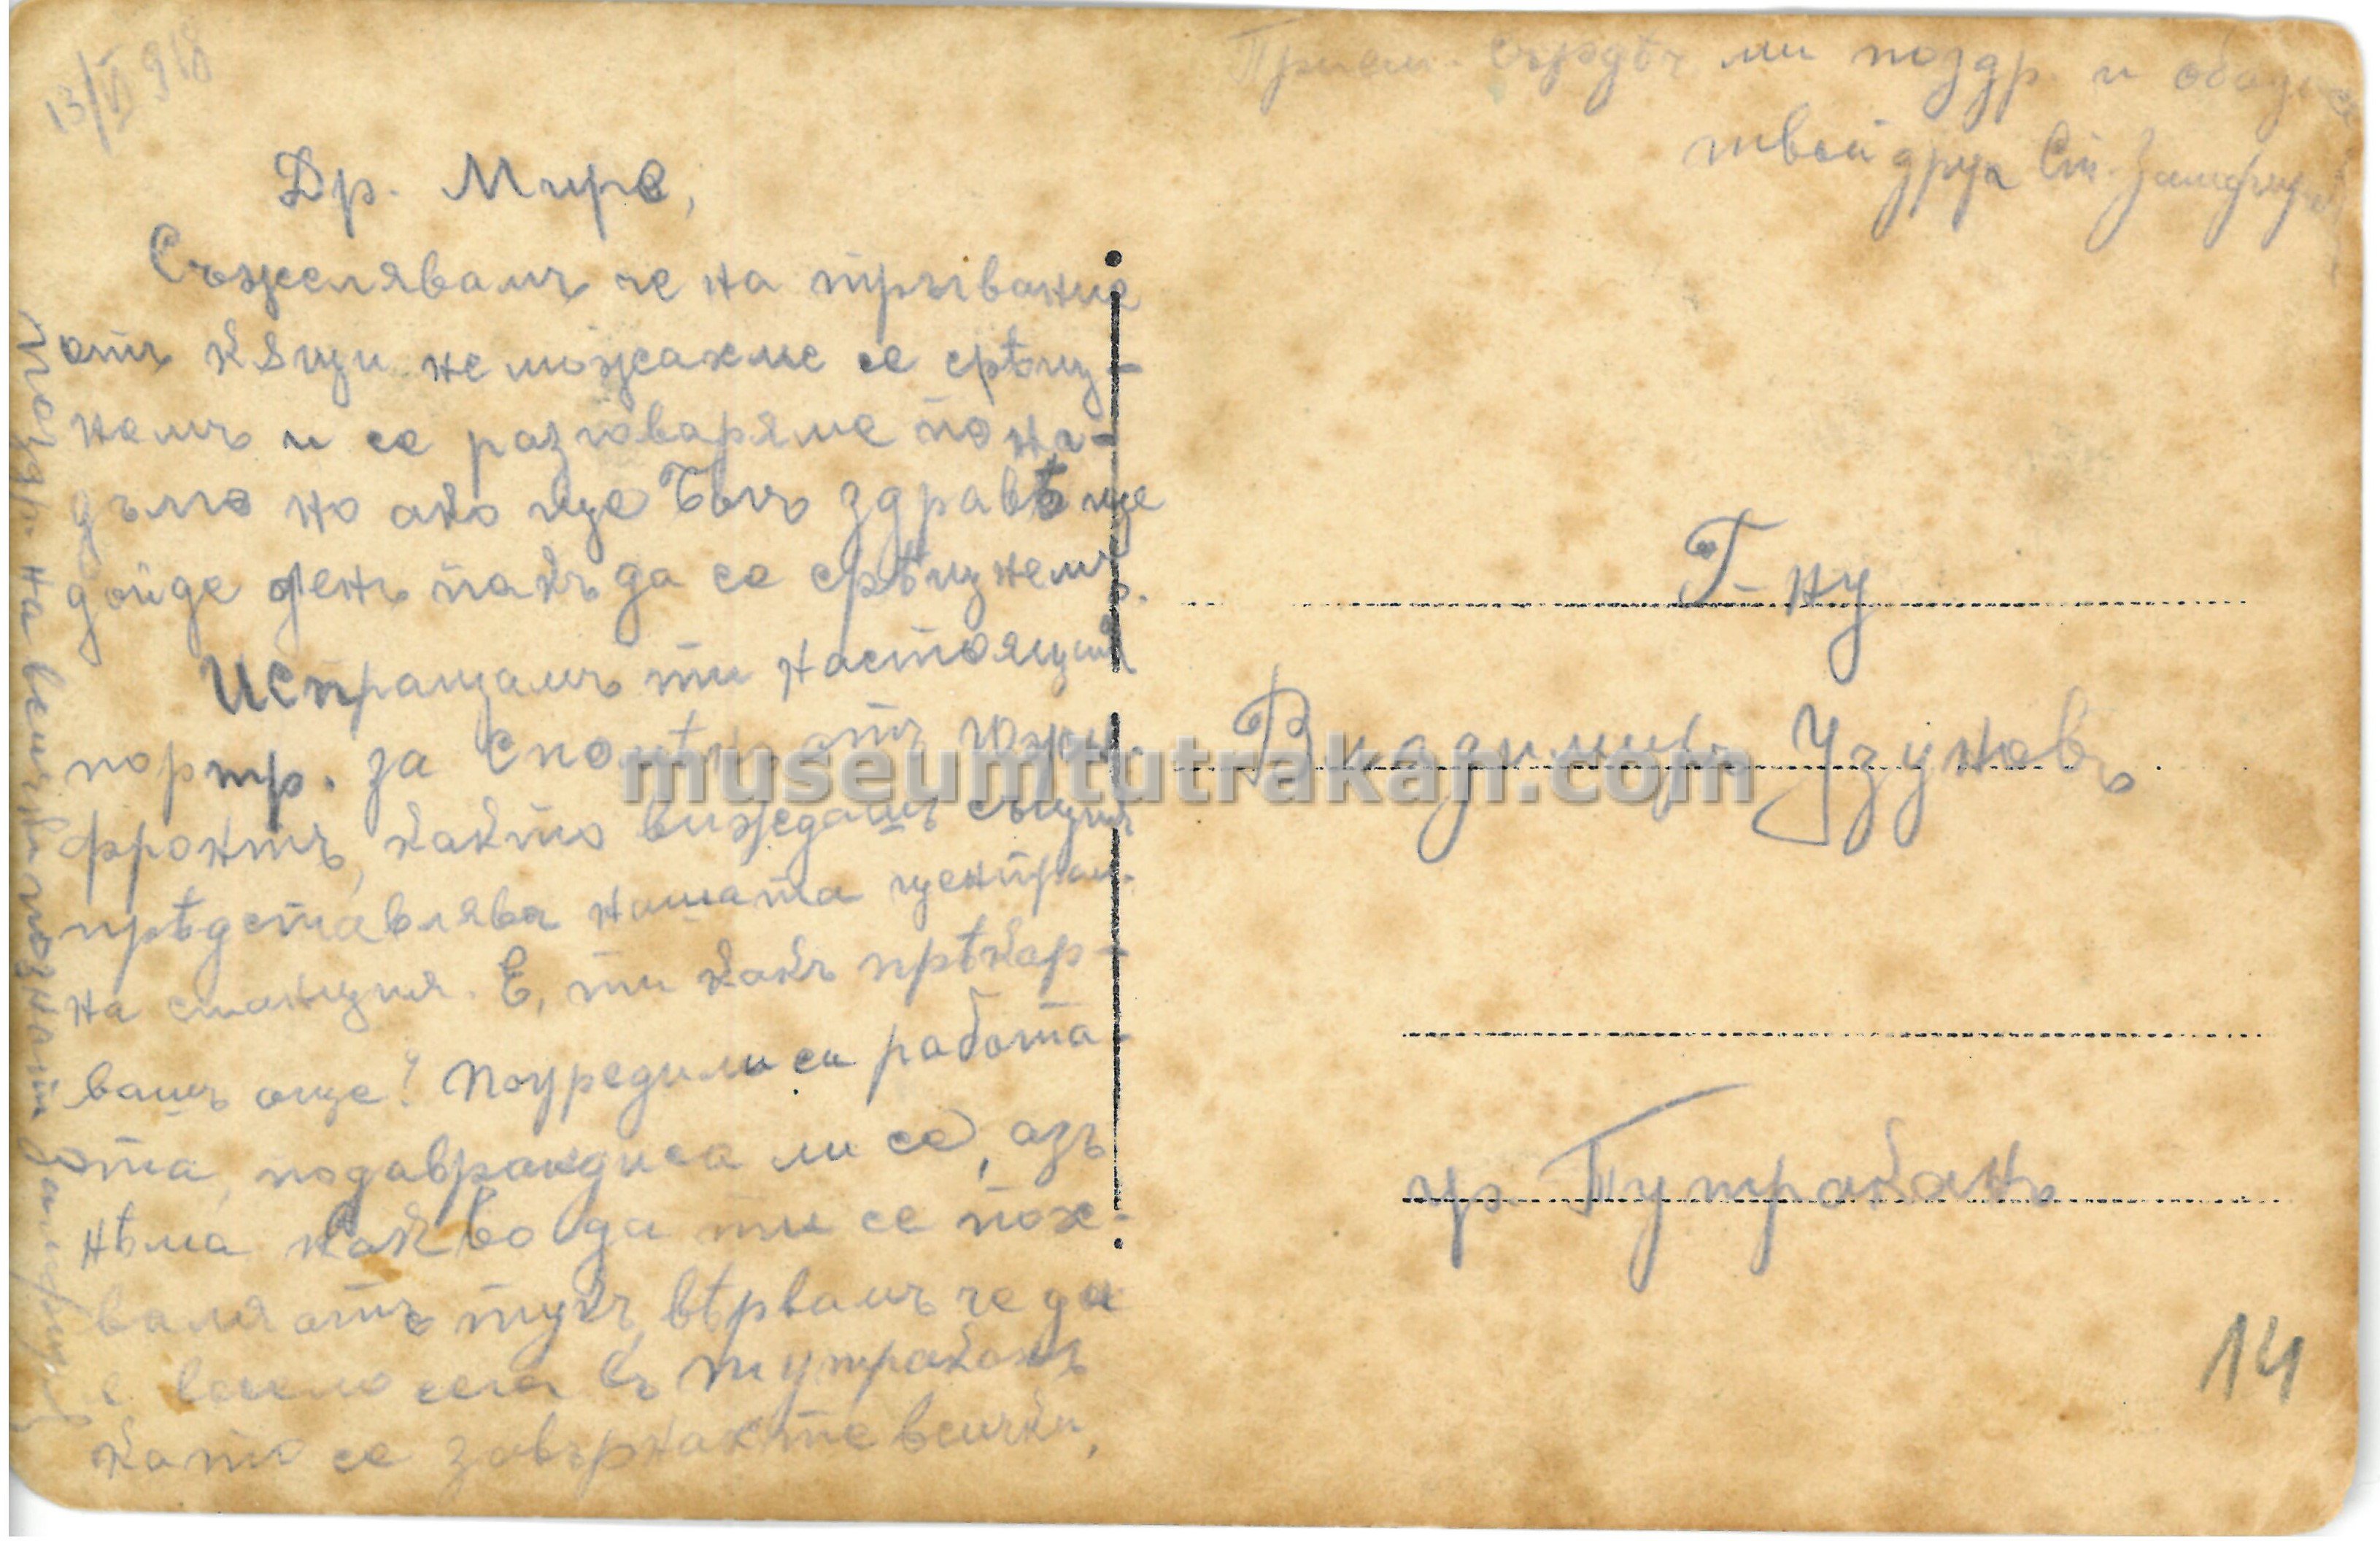 13/VI 918
Др. Миро,
Съжелявамъ че на тръгвание
отъ кѫщи не можахме се срѣщ-
немъ и се разговаряме пона-
дълго но ако ще Богъ здраве ще
дойде день пакъ да се срѣщнемъ.
Испращамъ ти настоящия
портр. за споменъ отъ Южн.
фронтъ, както виждашъ същия
прѣдставлява нашата централ-
на станция. Е, ти какъ прѣкар-
вашъ още? Поуредили си работа-
ота, подаврандиса ли се, азъ
нѣма какво да ти се пох-
валя отъ тукъ, вѣрвамъ че да
е весело сега въ Тутраканъ
като се завърнахте всички,
поздр. на всички познати Замфиров
Приеми сърдеч ми поздр. и обади се
твой друг Ст. Замфиров
Г-ну
Владимиръ Узуновъ
гр. Тутраканъ
14
museumtutrakan.com